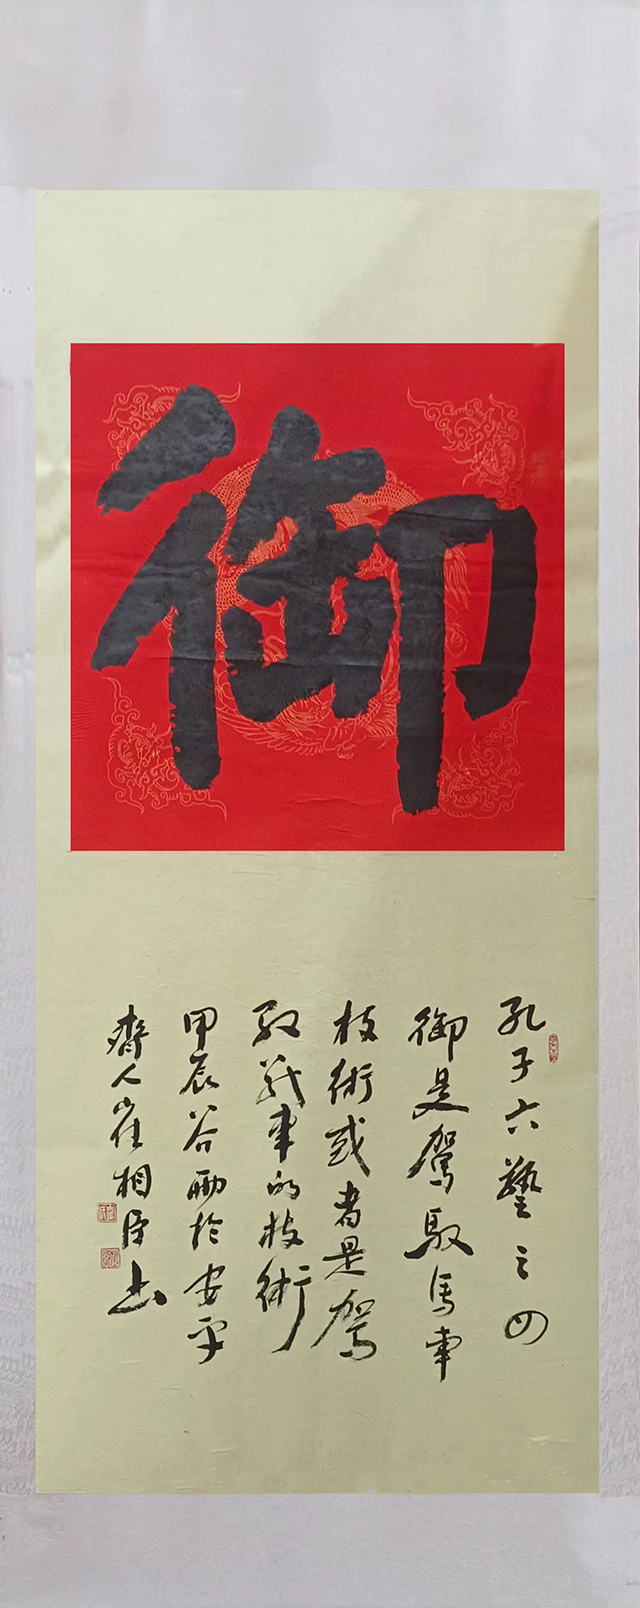 御
孔子六藝之四
御是駕馭馬車
技術或者是駕
馭戰車的技術
甲辰谷雨於安平
齊人崔相臣书